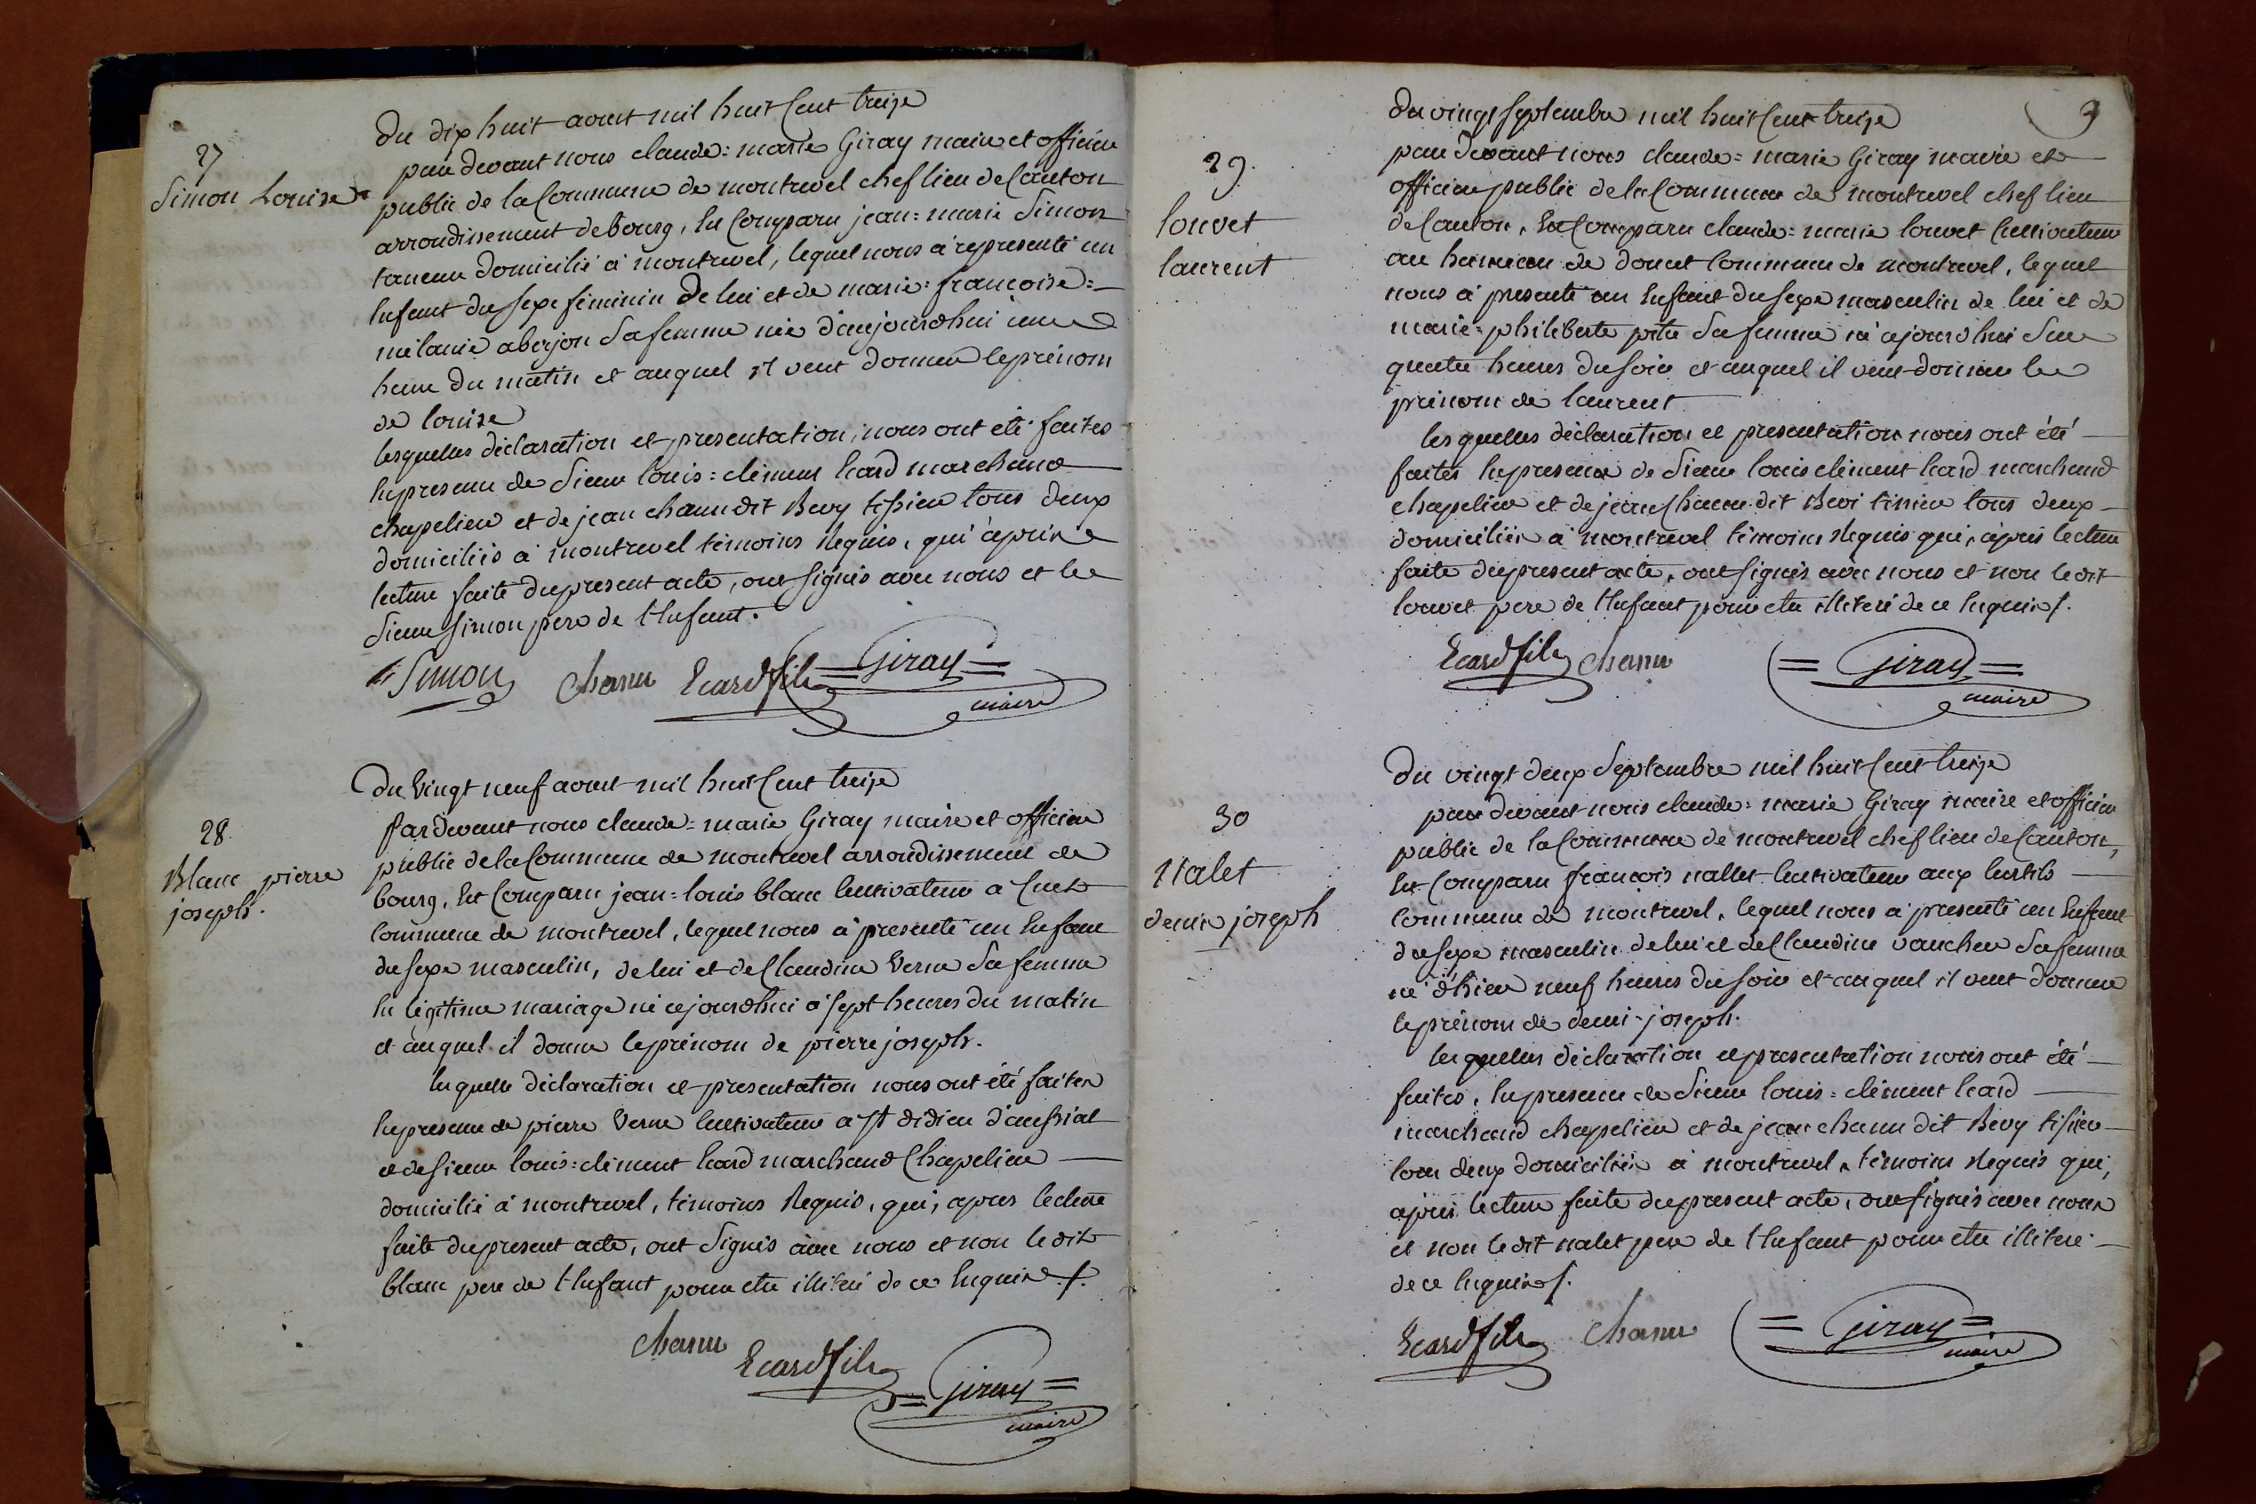 27
Simon Louise
du dix huit aout mil huit Cent treize
par devant nous claude=marie Giray maire et officier
public de la Commune de montrevel chef lieu de Canton
arrondissement de bourg, En Comparu jean=marie Simon
taneur domicilié à montrevel, lequel nous à representé un
Enfant du sexe féminin de lui et de marie=françoise=
mélanie aberjon Sa femme née d'aujourdhui une
heure du matin et auquel il veut donner le prénom
de louise
lesquelles déclaration et presentation, nous ont été faites
En presence de Sieur louis=clément Ecard marchand
chapelier et de jean chanu dit Bevy tissier tous deux
domiciliés à montrevel témoins Requis, qui après
lecture faite du present acte, ont signés avec nous et le
Sieur Simon pere de l'Enfant.
Simon chanu Ecard fils Giray
maire
28.
Blanc pierre
joseph.
du vingt neuf aout mil huit Cent treize
Pardevant nous claude=marie Giray maire et officier
public de la Commune de montrevel arrondissement de
bourg, Est Comparu jean=louis blanc Cultivateur a Cuet
Commune de montrevel, lequel nous à presenté un Enfant
du sexe masculin, de lui et de Claudine Verne Sa femme
En légitime mariage né cejourdhui à sept heures du matin
et auquel il donne le prénom de pierre joseph.
lesquelle déclaration et presentation nous ont été faites
En presence de pierre Verne Cultivateur a St didier d'aussiat
et de sieur louis=clément Ecard marchand Chapelier
domicilié à montrevel, témoins Requis, qui, apres lecture
faite du present acte, ont Signés avec nous et non le dit
blanc pere de l'Enfant pour etre illiteré de ce Enquis.
chanu
Ecard fils
Giray
maire
9
29.
louvet
laurent
du vingt septembre mil huit Cent treize
par devant nous claude=marie Giray maire et
officier public de la Commune de montrevel chef lieu
de Canton, Est Comparu claude=marie louvet Cultivateur
au hameau de doucet Commune de montrevel, lequel
nous à presenté un Enfant du sexe masculin de lui et de
marie=philiberte pitre Sa femme né cejourdhui Sur
quatre heures du soir et auquel il veut donner le
prénom de laurent
lesquelles déclaration et presentation nous ont été
faites En presence de Sieur louis clément Ecard marchand
chapelier et de jean Chanu dit Bevi tissier tous deux
domiciliés à montrevel témoins Requis qui, après lecture
faite du present acte, ont signés avec nous et non le dit
louvet pere de l'Enfant pour etre illiteré de ce Enquis.
Ecard fils chanu Giray
maire
30
Nalet
denis joseph
Du vingt deux Septembre mil huit Cent treize
par devant nous claude=marie Giray maire et officier
public de la Commune de montrevel chef lieu de Canton,
Est Comparu françois nallet Cultivateur aux
Commune de montrevel, lequel nous à presenté un Enfant
du sexe masculin de lui et de Claudine vaucher Sa femme
né d'hier neuf heures du soir et auquel il veut donner
le prénom de denis-joseph.
lesquelles déclaration et presentation nous ont été
faites, En presence de Sieur louis=clément Ecard
marchand chapelier et de jean chanu dit Bevy tissier
tous deux domiciliés à montrevel, témoins Requis qui,
après lecture faite du present acte, ont signés avec nous
et non le dit nalet pere de l'Enfant pour etre illiteré
de ce Enquis.
Ecard fils chanu Giray
maire